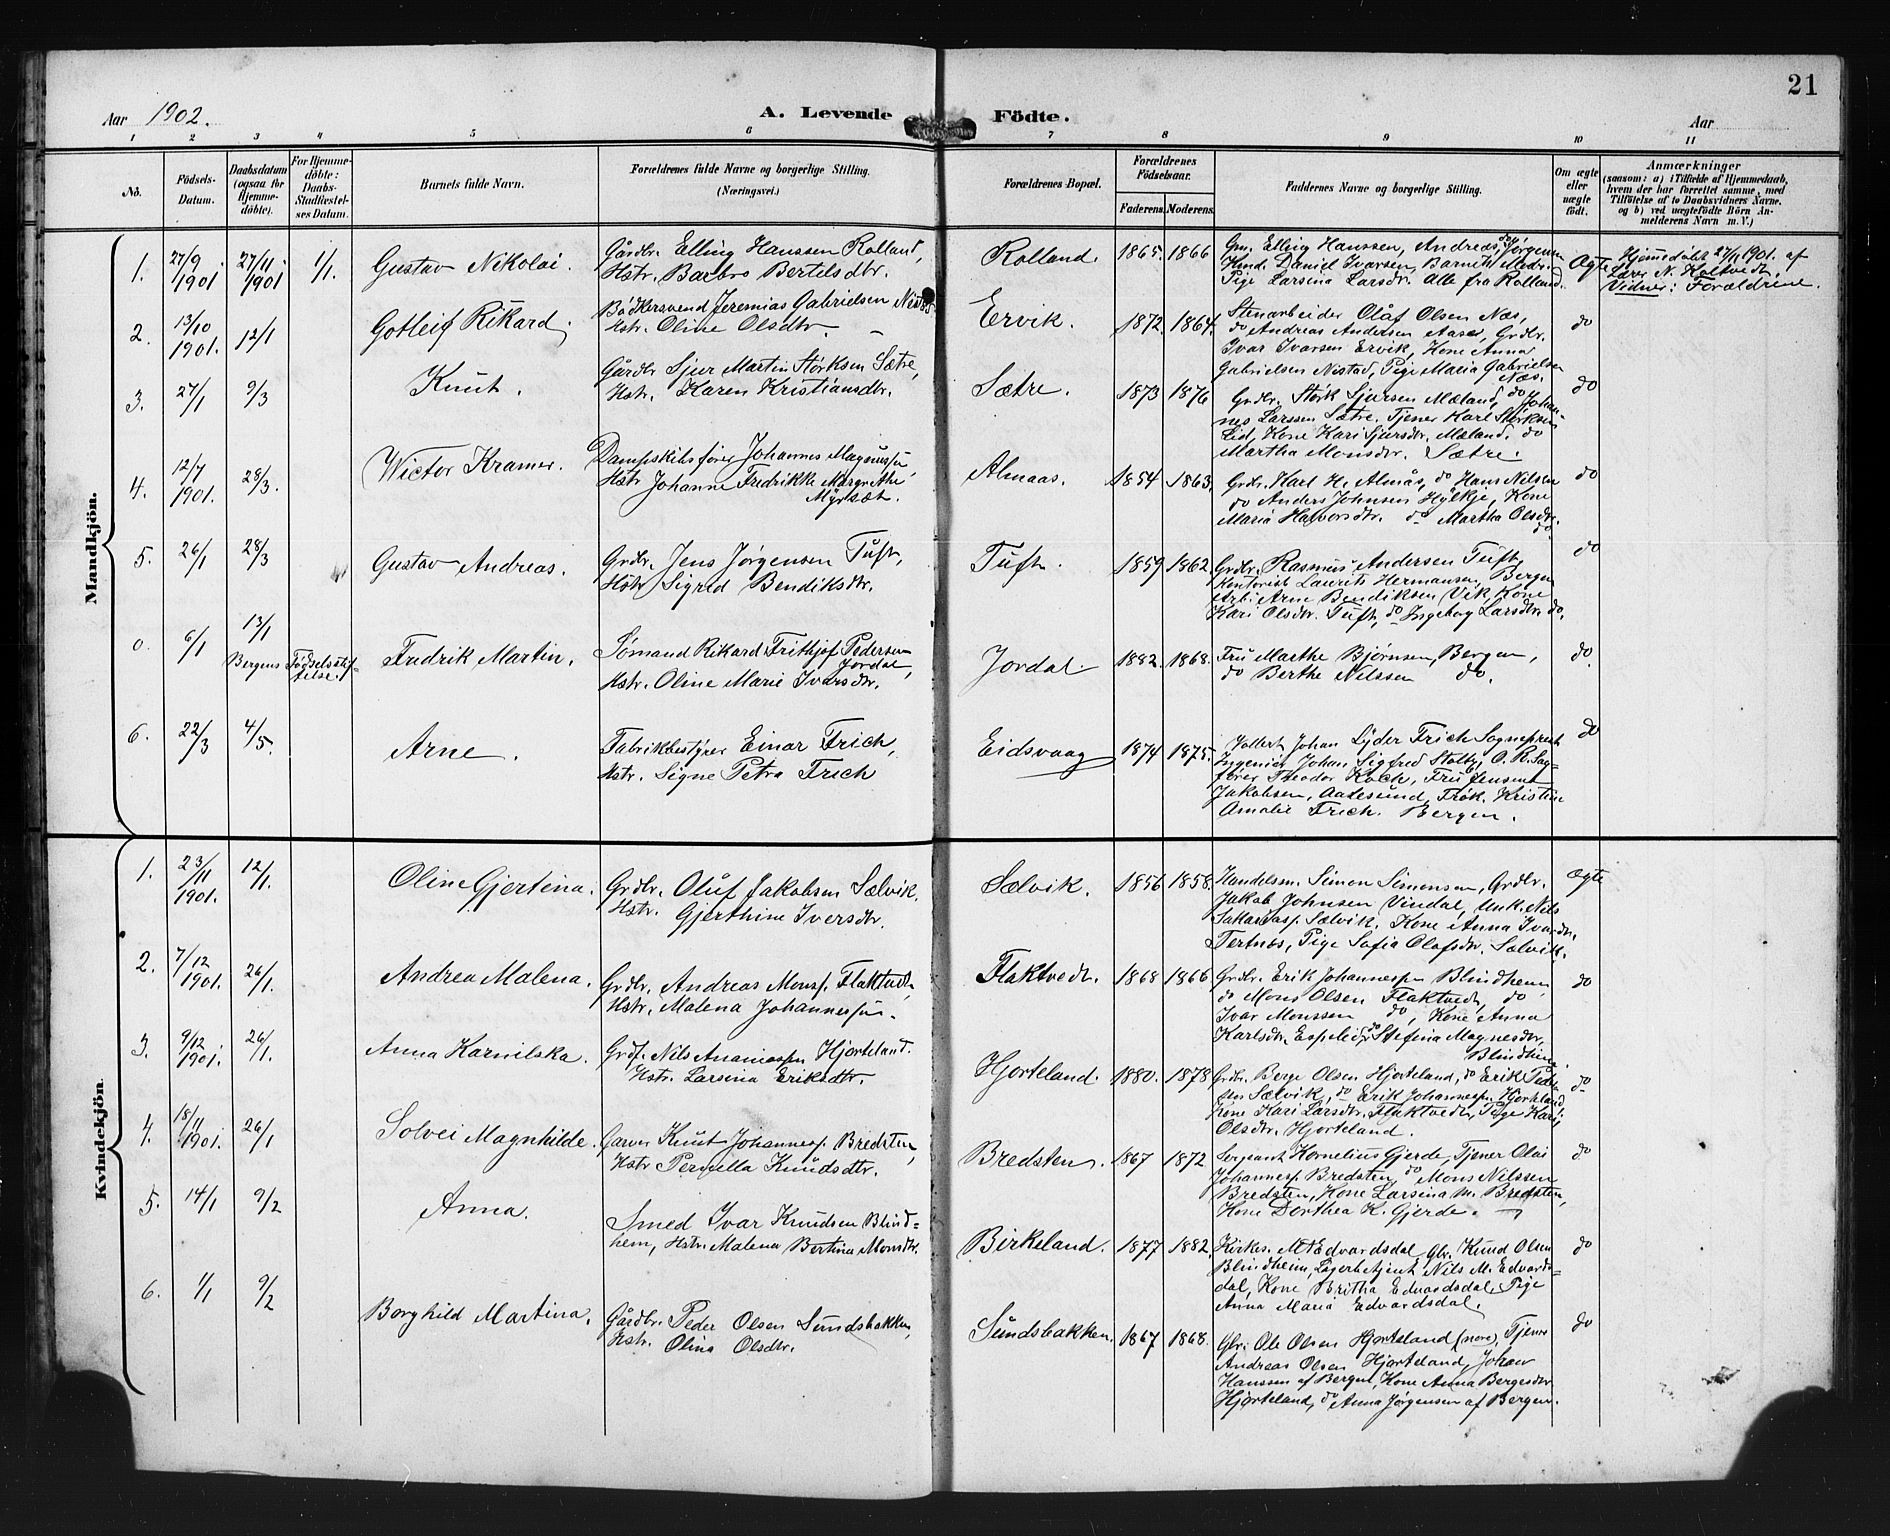 21
Aar 1902.
A. Levende Födte.
Aar
1 2 3 4 5 6 7 8 9 10 11
No.
Födsels-Datum.
Daabsdatum (ogsaa for Hjemme-döbte).
For Hjemme-döbte: Daabs-Stadfæstel-ses Datum.
Barnets fulde Navn.
Forældrenes fulde Navne og borgerlige Stilling. (Næringsvei.)
Forældrenes Bopæl.
Forældrenes Födselsaar.
Faderens. Moderens.
Faddernes Navne og borgerlige Stilling.
Om ægte eller uægte födt.
Anmærkninger
(saasom: a) i Tilfælde af Hjemmedaab, hvem der har forrettet samme, med Tilföielse af to Daabsvidners Navne. og b) ved uægtefödte Börn An-melderens Navn m. V.)
Mandkjön.
1. 27/9 1901 27/11 1901 1/1 Gustav Nikolai.
Gårdbr. Elling Hanssen Rolland,
Hstr. Barbro Bertelsdtr.
Rolland. 1865. 1866
Gm. Elling Hanssen, Andreas do Jørgensen
Daniel Ivarsen, Barnets Moder.
Pige Larsina Larsdtr. Alle fra Rolland.
Ægte
Hjemmedøbt 27/11 1901. af
Lærer N. Koltvedt.
Vidner: Forældrene.
2. 13/10 1901. 12/1 Gotleif Rikard.
Bødkersvend Jeremias Gabrielsen
Hstr. Oline Olsdtr.
Ervik. 1872 1864.
Stenarbeider Olaf Olsen Næs,
do Andreas Andersen Aasæ, Grdbr.
Ivar Ivarsen Ervik, Kone Anna
Gabrielsen Nistad, Pige Maria Gabrielsen
Næs.
do
3. 27/1 9/3 Knut.
Gårdbr Sjur Martin Størksen Sætre,
Hstr. Karen Kristiansdtr.
Sætre. 1873 1876
Grdbr. Størk Sjursen Mæland, do Johan-
nes Larssen Sætre. Tjener Karl Størksen
Lid, Kone Kari Sjursdtr. Mæland. do
Martha Monsdtr. Sætre.
do
4. 12/7 1901. 28/3. Wictor Kramer.
Dampskibsfører Johannes Magnussen
Hstr Johanne Fredrikke Margrethe
Myrsæt.
Almaas. 1854 1863.
Grdbr. Karl H. Almås, do Hans Nilsen
do Anders Johnsen Hylkje, Kone
Maria Halvorsdtr. do Martha Olsdtr.
do.
do
5. 26/1 28/3 Gustav Andreas.
Grdbr. Jens Jørgensen Tuft,
Hstr Sigrid Bendiksdtr.
Tuft. 1859 1862
Grdbr. Rasmus Andersen Tuft,
Kontorist Laurits Hermansen, Bergen
Arb. Arne Bendiksen Vik, Kone
Kari Olsdtr. Tuft, do Ingeborg Larsdtr. do.
do
0 6/1 13/1 Bergens Fødselsstif-telse. Fredrik Martin.
Sømand Rikard Frithjof Pedersen
Jordal,
Hstr. Oline Marie Ivarsdtr.
Jordal. 1882. 1868.
Fru Marthe Bjørnsen, Bergen,
do Berthe Nilssen do.
do.
6. 22/3 4/5. Arne.
Fabrikbestyrer Einar Frich,
Hstr. Signe Petra Frich
Eidsvaag 1874 1875.
Vollert Johan Lyder Frich Sogneprest
Ingeniør Johan Sigfred Stolty, O. R. Sag-
fører Theodor Koch, Fru Jensine
Jakobsen, Aalesund, Frøk. Kristine
Amalie Frich. Bergen.
do
Kvindekjön.
1. 23/11 1901. 12/1. Oline Gjertina.
Grdbr. Oluf Jakobsen Sælvik.
Hstr. Gjerthine Iversdtr.
Sælvik. 1856 1858.
Handelsm. Simon Simonsen, Grdbr.
Jakob Johnsen Vindal, Unk. Nils
Sakariasp. Sælvik. Kone Anna Ivarsdtr.
Tertnæs, Pige Sofia Olafsdtr. Sælvik.
Ægte
2. 7/12 1901. 26/1. Andrea Malena.
Grdbr. Andreas Monsp. Flaktvedt,
Hstr. Malena Johannessen.
Flaktvedt. 1868 1866
Grdbr. Erik Johannespn Blindheim
do Mons Olsen Flaktvedt, do
Ivar Monssen do, Kone Anna
Karlsdtr. Espelid, do Stefina Magnesdtr,
Blindheim.
do
3. 9/12 1901. 26/1. Anna Karnilska.
Nils Ananiaspn Hjorteland.
Hstr. Larsina Eriksdtr.
Hjorteland. 1880. 1878
Grdbr. Berge Olsen Hjorteland, do Erik Peder-
sen Sælvik, do Erik Johannespn. Hjorteland
Kone Kari Larsdtr. Flaktvedt, Pige Kari
Olsdtr. Hjorteland.
do
4. 18/11 1901. 26/1 Solvei Magnhilde.
Garver Knut Johannesp. Bredsten,
Hstr Pernella Knudsdtr.
Bredsten. 1867 1872
Sergeant Kornelius Gjerde, Tjener Olai
Johannesp. Bredsten do Mons Nilssen
Bredsten, Kone Larsina M. Bredsten,
Kone Dorthea K. Gjerde.
do
5. 14/1 9/2 Anna.
Smed Ivar Knudsen Blind=
hem, Hstr. Malena Bertina Monsdtr.
Birkeland. 1877 1882.
Kirkes. M. Edvardsdal, Gbr. Knud Olsen
Blindheim, Lagerbetjent Nils M. Edvards=
dal, Kone Britha Edvardsdal, Pige
Anna Maria Edvardsdal.
do
6. 1/1 9/2 Borghild Martina.
Gårdbr. Peder Olsen Sundsbakken,
Hstr. Olina Olsdtr.
Sundsbakken. 1867 1868.
Gbr. Ole Olsen Hjorteland (nore), Tjener
Andreas Olsen Hjorteland, Johan
Hanssen af Bergen, Kone Anna Bergesdtr
Hjorteland, do Anna Jørgensen af Bergen.
do